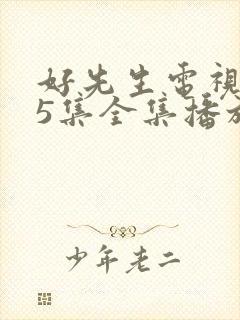 好先生電視
5集全集播放
少年老二